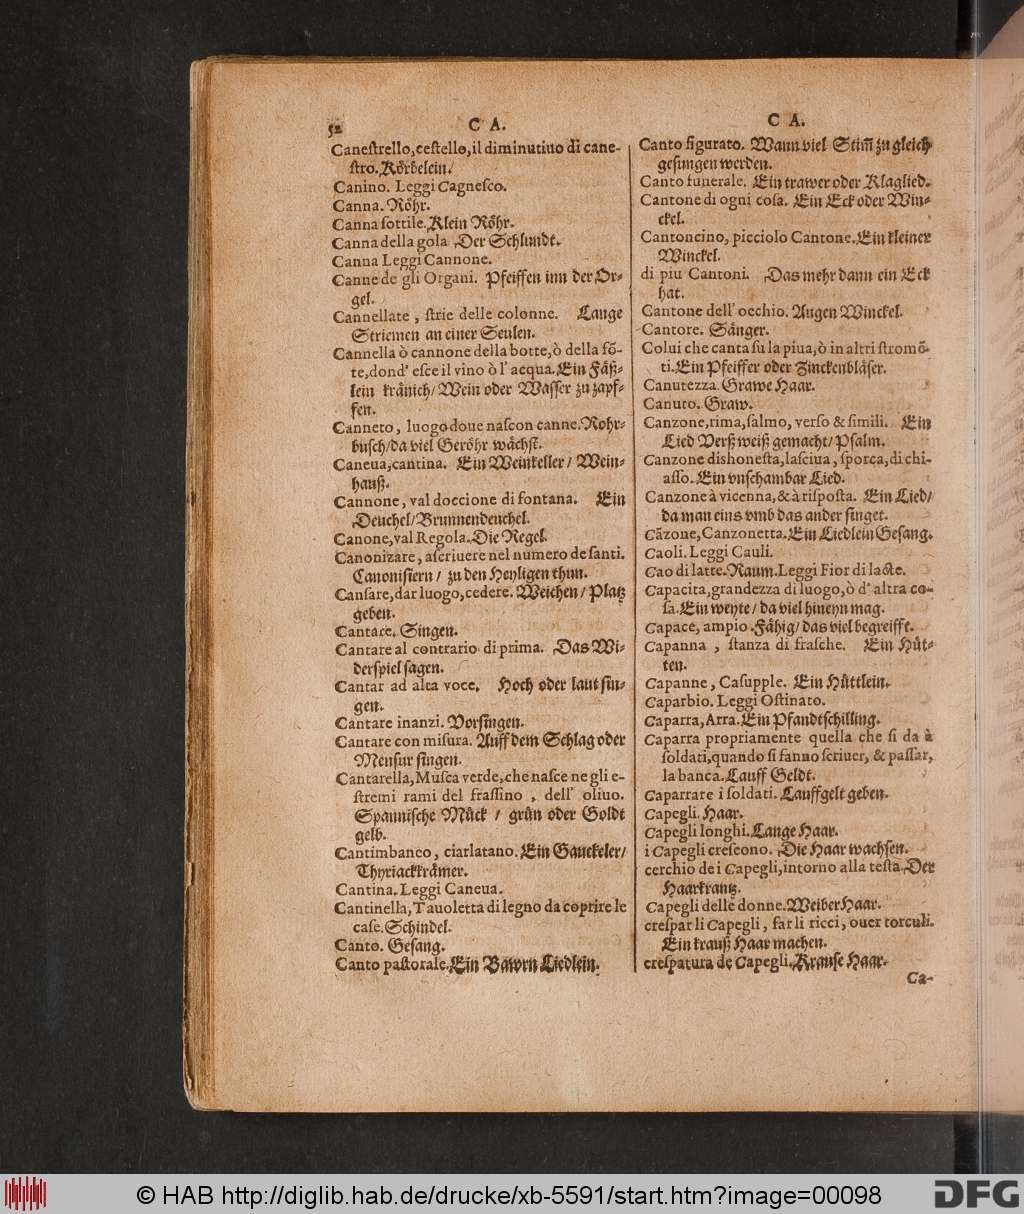 52
C A.
Caneſtrello, ceſtello, il diminutiuo di cane-
ſtro. Koͤrbelein/
Canino. Leggi Cagneſco.
Canna. Roͤhr.
Canna ſottile. Klein Roͤhr.
Canna della gola Der Schlundt.
Canna Leggi Cannone.
Canne de gli Organi. Pfeiffen inn der Or-
gel.
Cannellate, ſtrie delle colonne. Lange
Striemen an einer Seulen.
Cannella ò cannone della botte, ò della fõ-
te, dond' eſce il vino ò l' acqua. Ein Faͤß-
lein kraͤnich/ Wein oder Waſſer zu zapf-
fen.
Canneto, luogo doue naſcon canne. Rohr-
buſch/ da viel Geroͤhr waͤchſt.
Caneua, cantina. Ein Weinkeller/ Wein-
hauß.
Cannone, val doccione di fontana. Ein
Deuchel/ Brunnendeuchel.
Canone, val Regola. Die Regel.
Canonizare, aſcriuere nel numero de ſanti.
Canoniſiern/ zu den Heyligen thun.
Canſare, dar luogo, cedere. Weichen/ Platz
geben.
Cantare. Singen.
Cantare al contrario di prima. Das Wi-
derſpiel ſagen.
Cantar ad alta voce. Hoch oder laut ſin-
gen.
Cantare inanzi. Vorſingen.
Cantare con miſura. Auff dem Schlag oder
Menſur ſingen.
Cantarella, Muſca verde, che naſce ne gli e-
ſtremi rami del fraſſino, dell' oliuo.
Spanniſche Muͤck/ gruͤn oder Goldt
gelb.
Cantimbanco, ciarlatano. Ein Gauckeler/
Thyriackkraͤmer.
Cantina. Leggi Caneua.
Cantinella, Tauoletta di legno da coprire le
caſe. Schindel.
Canto. Geſang.
Canto paſtorale. Ein Bawrn Liedlein.
C A.
Canto figurato. Wann viel Stim̃ zu gleich
geſungen werden.
Canto funerale. Ein trawer oder Klaglied.
Cantone di ogni coſa. Ein Eck oder Win-
ckel.
Cantoncino, picciolo Cantone. Ein kleiner
Winckel.
di piu Cantoni. Das mehr dann ein Eck
hat.
Cantone dell' occhio. Augen Winckel.
Cantore. Saͤnger.
Colui che canta ſu la piua, ò in altri ſtromẽ
ti. Ein Pfeiffer oder Zinckenblaͤſer.
Canutezza. Grawe Haar.
Canuto. Graw.
Canzone, rima, ſalmo, verſo & ſimili. Ein
Lied Verß weiß gemacht/ Pſalm.
Canzone dishoneſta, laſciua, ſporca, di chi-
aſſo. Ein vnſchambar Lied.
Canzone à vicenna, & à riſpoſta. Ein Lied/
da man eins vmb das ander ſinget.
Cãzone, Canzonetta. Ein Liedlein Geſang.
Caoli. Leggi Cauli.
Cao di latte. Raum. Leggi Fior di lacte.
Capacita, grandezza di luogo, ò d' altra co-
ſa. Ein weyte/ da viel hineyn mag.
Capace, ampio. Faͤhig/ das viel begreifft.
Capanna, ſtanza di fraſche. Ein Huͤt-
ten.
Capanne, Caſupple. Ein Huͤttlein.
Caparbio. Leggi Oſtinato.
Caparra, Arra. Ein Pfandtſchilling.
Caparra propriamente quella che ſi da à
ſoldati, quando ſi fanno ſcriuer, & paſſar,
la banca. Lauff Geldt.
Caparrare i ſoldati. Lauffgelt geben.
Capegli. Haar.
Capegli longhi. Lange Haar.
i Capegli creſcono. Die Haar wachſen.
cerchio de i Capegli, intorno alla teſta. Der
Haarkrantz.
Capegli delle donne. Weiber Haar.
creſpar li Capegli, far li ricci, ouer torculi.
Ein krauß Haar machen.
creſpatura de Capegli. Krauſe Haar.
Ca-
© HAB http://diglib.hab.de/drucke/xb-5591/start.htm?image=00098
DFG